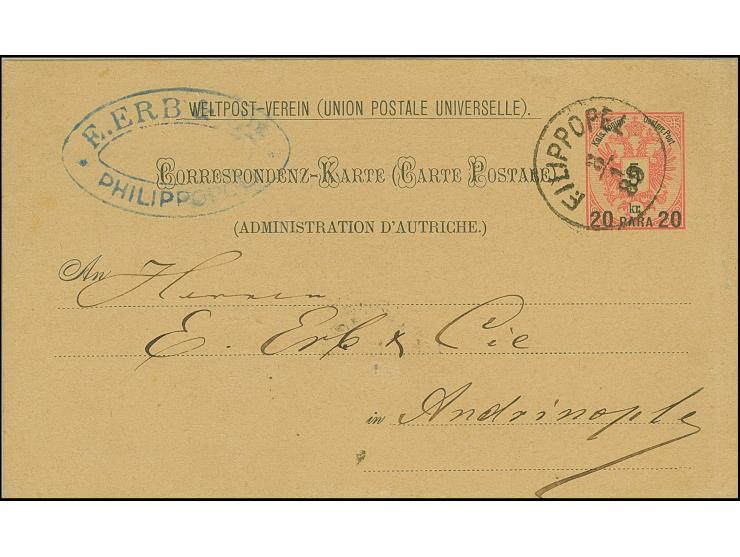 E. ERB
PHILIPPOPEL
WELTPOST-VEREIN (UNION POSTALE UNIVERSELLE).
CORRESPONDENZ-KARTE (CARTE POSTALE)
(ADMINISTRATION D'AUTRICHE.)
FILIPPOPEL
89
5
kr.
20 PARA 20
An Herren
E. Erb & Cie
in Andrinople